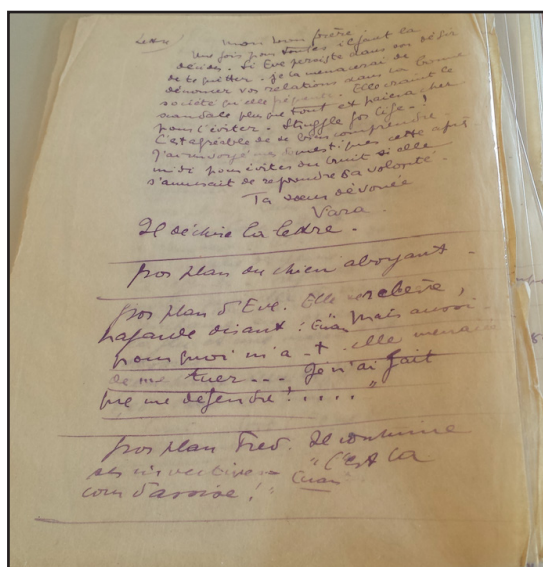 Lettre mon bon frère
Une fois pour toutes il faut la
décider. Si Eve persiste dans son désir
de te quitter. je la menacerai de
dénoncer vos relations dans la bonne
société qu'elle . Elle craint le
scandale plus que tout et paiera cher
pour l'éviter. Stuggle for life - !
C'est agréable de se bien comprendre.
J'ai domestiques cette après
midi pour éviter du bruit si elle
s'amusait de reprendre sa volonté.
Ta sœur dévouée
Vara
Il déchire la lettre.
gros plan du chien aboyant -
gros plan d'Eve. Elle relève,
hagarde disant : mais aussi
pourquoi m'a-t-elle menacé
de me tuer --- Je n'ai fait
que me défendre! ....
gros plan Fred. Il continue
ses invectives "C'est la
cour d'assise!"